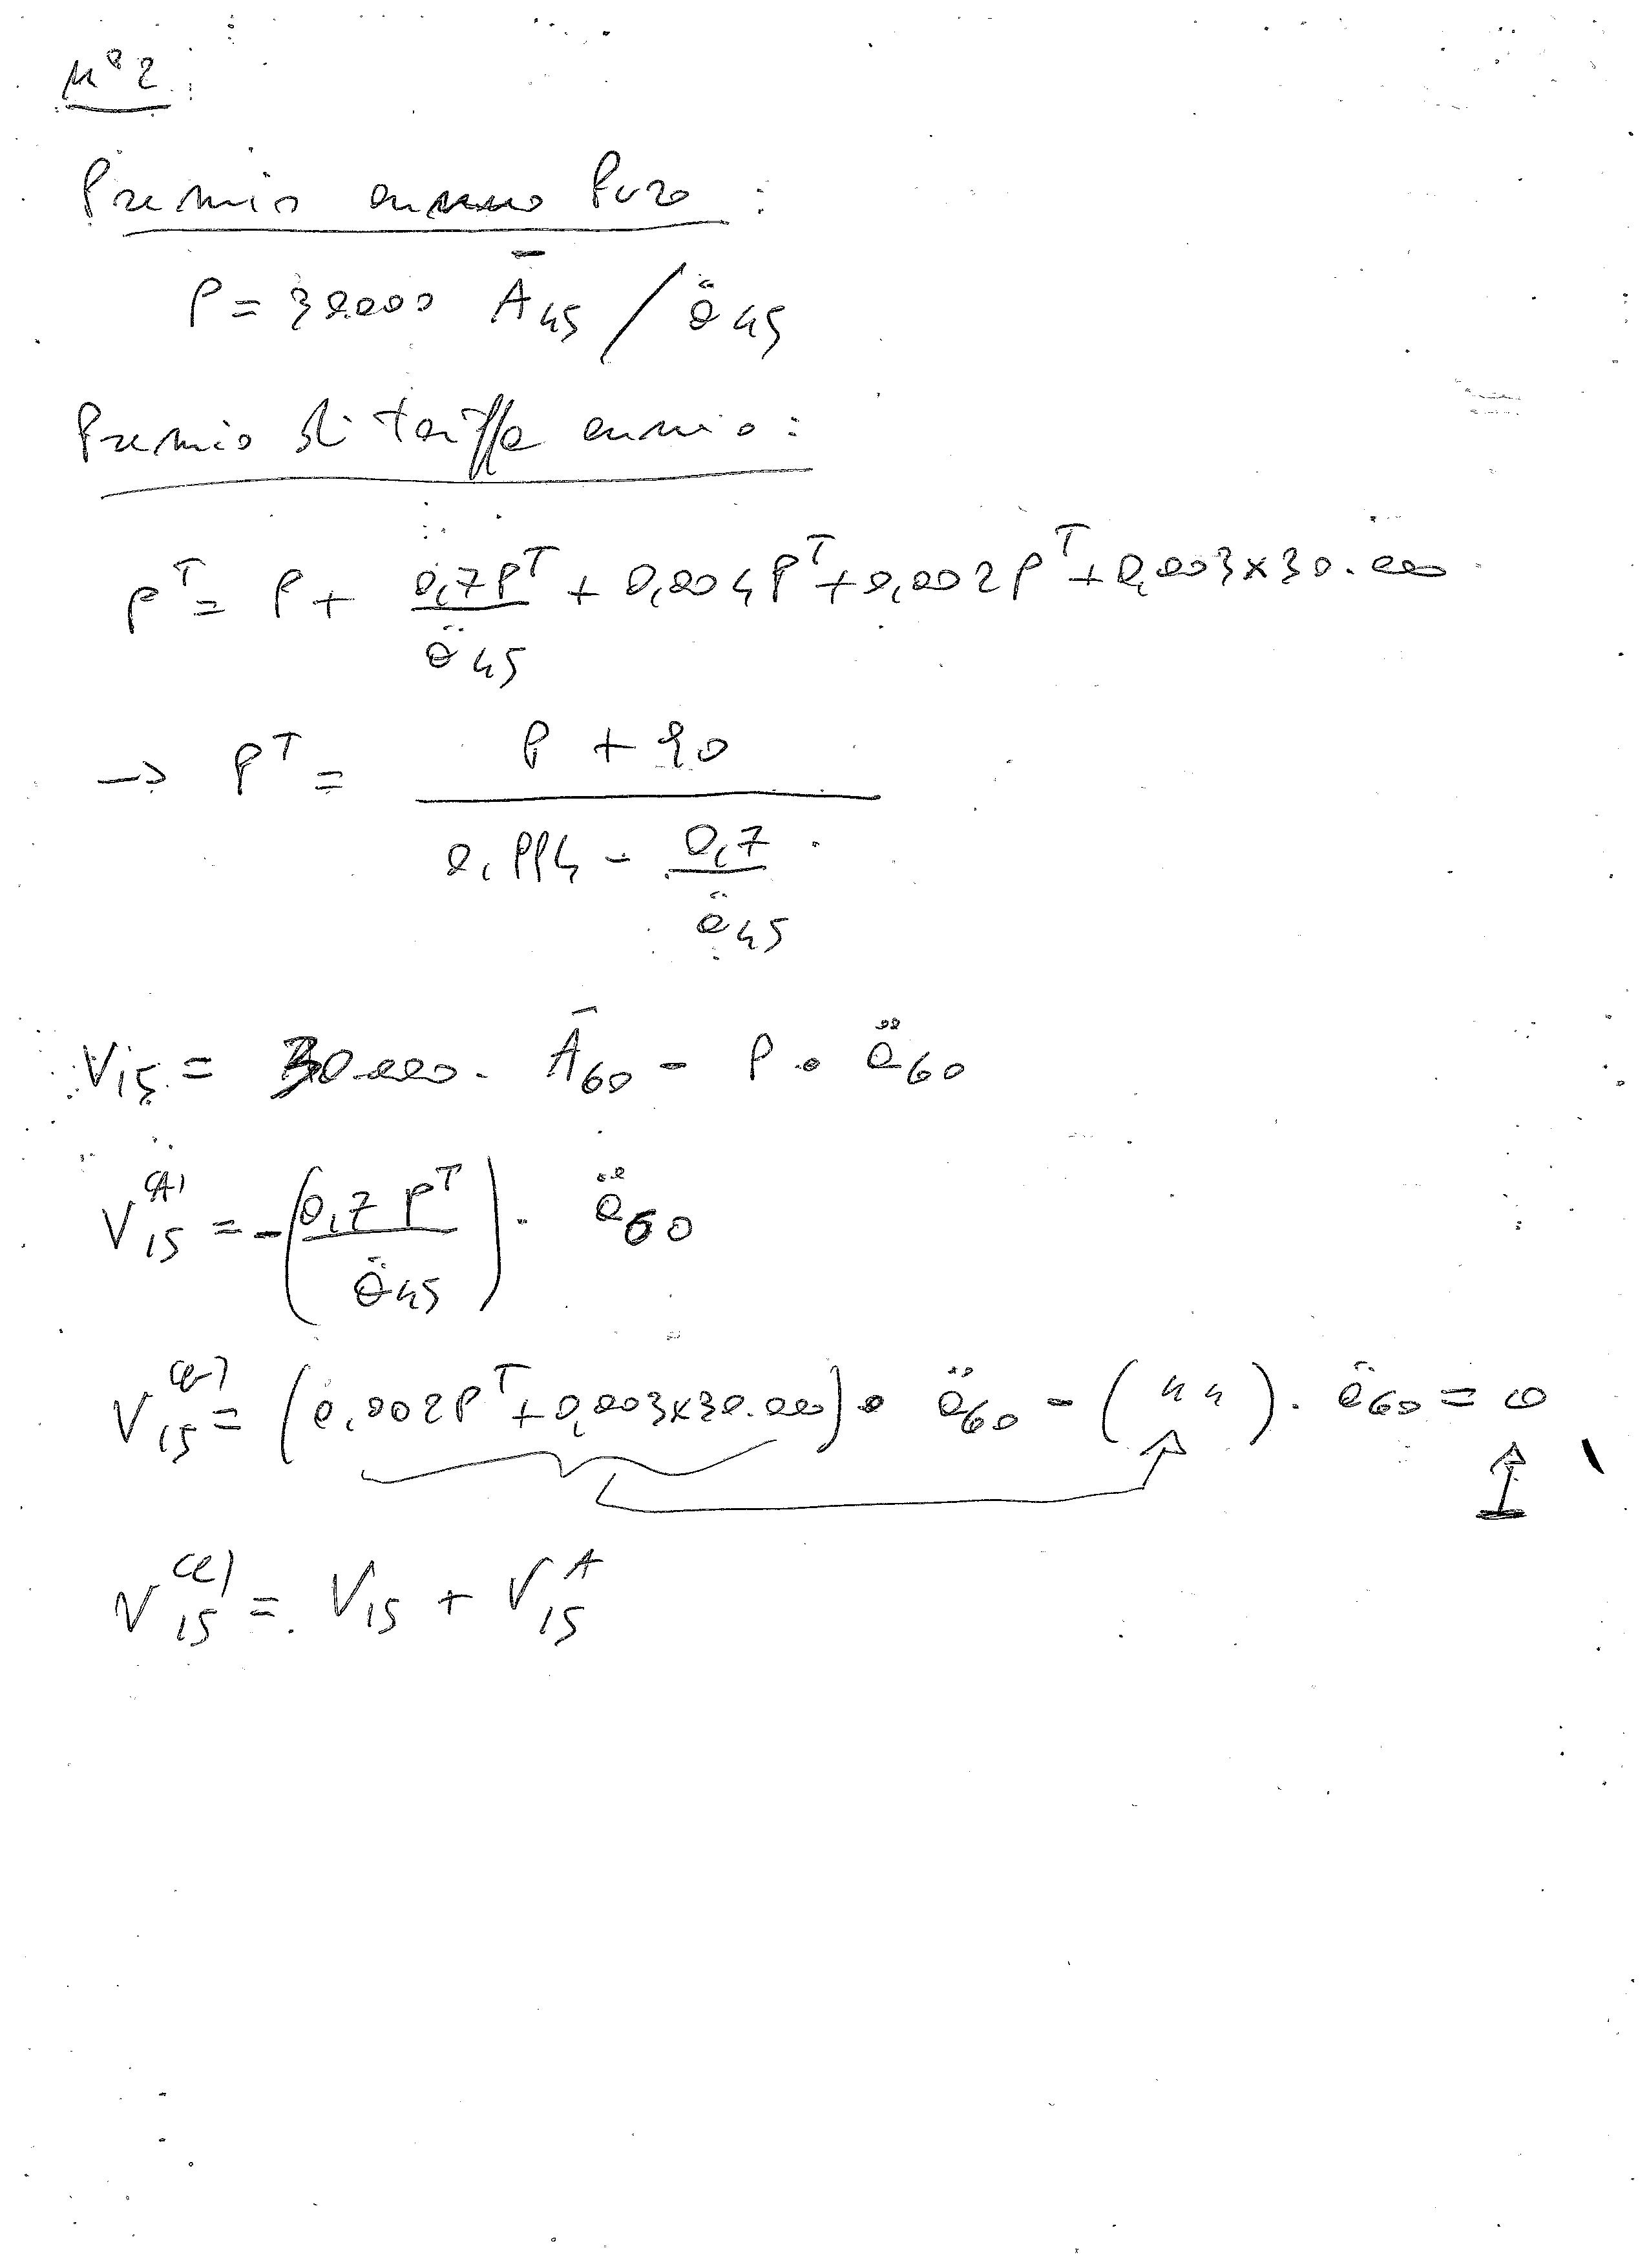 n° 2
Premio annuo Puro :
P = 30000 Ā45 / ä45
Premio di tariffa annuo :
P^T = P + 0,7P^T / ä45 + 0,004P^T + 0,002P^T + 0,003x30.000
→ P^T = (P + 90) / (0,994 - 0,7 / ä45)
V15 = 30.000. Ā60 - P . ä60
V15^(A) = -(0,7 P^T / ä45) . ä60
V15 = (0,002P^T + 0,003x30.000) . ä60 - ( " " ) . ä60 = 0
V15^(c) = V15 + V15^A